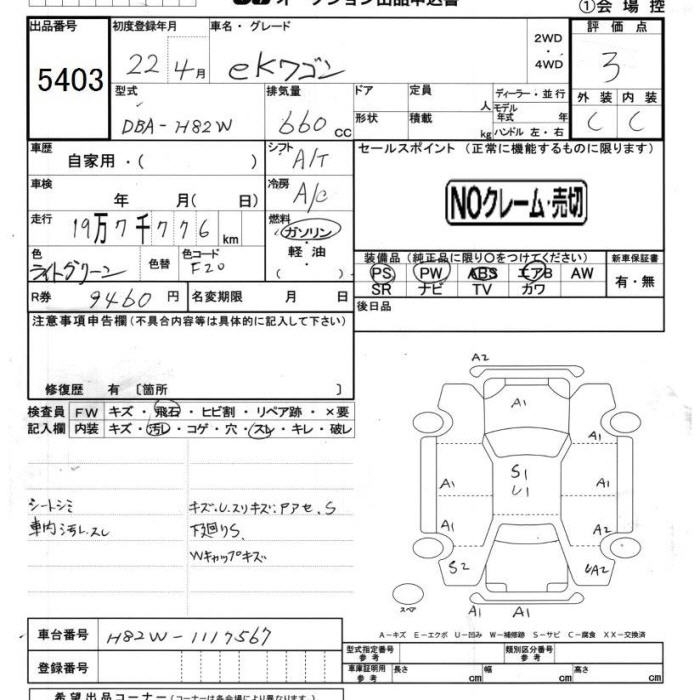 オークション出品申込書
①会場控
出品番号
5403
初度登録年月
22年4月
車名・グレード
eKワゴン
2WD
・
4WD
評価点
3
外装 内装
C C
型式
DBA-H82W
排気量
660cc
ドア
形状
定員
人
積載
kg
ディーラー・並行
モデル年式 年
ハンドル 左・右
車歴
自家用・( )
シフト
A/T
セールスポイント (正常に機能するものに限ります)
NOクレーム・売切
車検
年 月( 日)
冷房
A/C
走行
19万7千776km
燃料
ガソリン
・
軽油
( )
色
ライトグリーン
色替
色コード
F20
装備品 (純正品に限り○をつけてください)
PS PW ABS エアB AW
SR ナビ TV カワ
新車保証書
有・無
R券
9460円
名変期限 月 日
後日品
注意事項申告欄(不具合内容等は具体的に記入して下さい)
修復歴 有 〔箇所 〕
検査員
記入欄
FW キズ・飛石・ヒビ割・リペア跡・×要
内装 キズ・汚レ・コゲ・穴・スレ・キレ・破レ
シートシミ
車内汚レ.スレ
キズ.U.スリキズ:アアセ.S
下廻りS.
Wキャップキズ
A2
A1
A1
A1
S1
U1
A1
A1
A2
S2
UA2
A1 A1
スペア
A-キズ E-エクボ U-凹み W-補修跡 S-サビ C-腐食 XX-交換済
車台番号
H82W-1117567
型式指定番号
参考
類別区分番号
参考
登録番号
車庫証明用
参考
長さ cm
幅 cm
高さ cm
希望出品コーナー(コーナーは各会場により異なります)